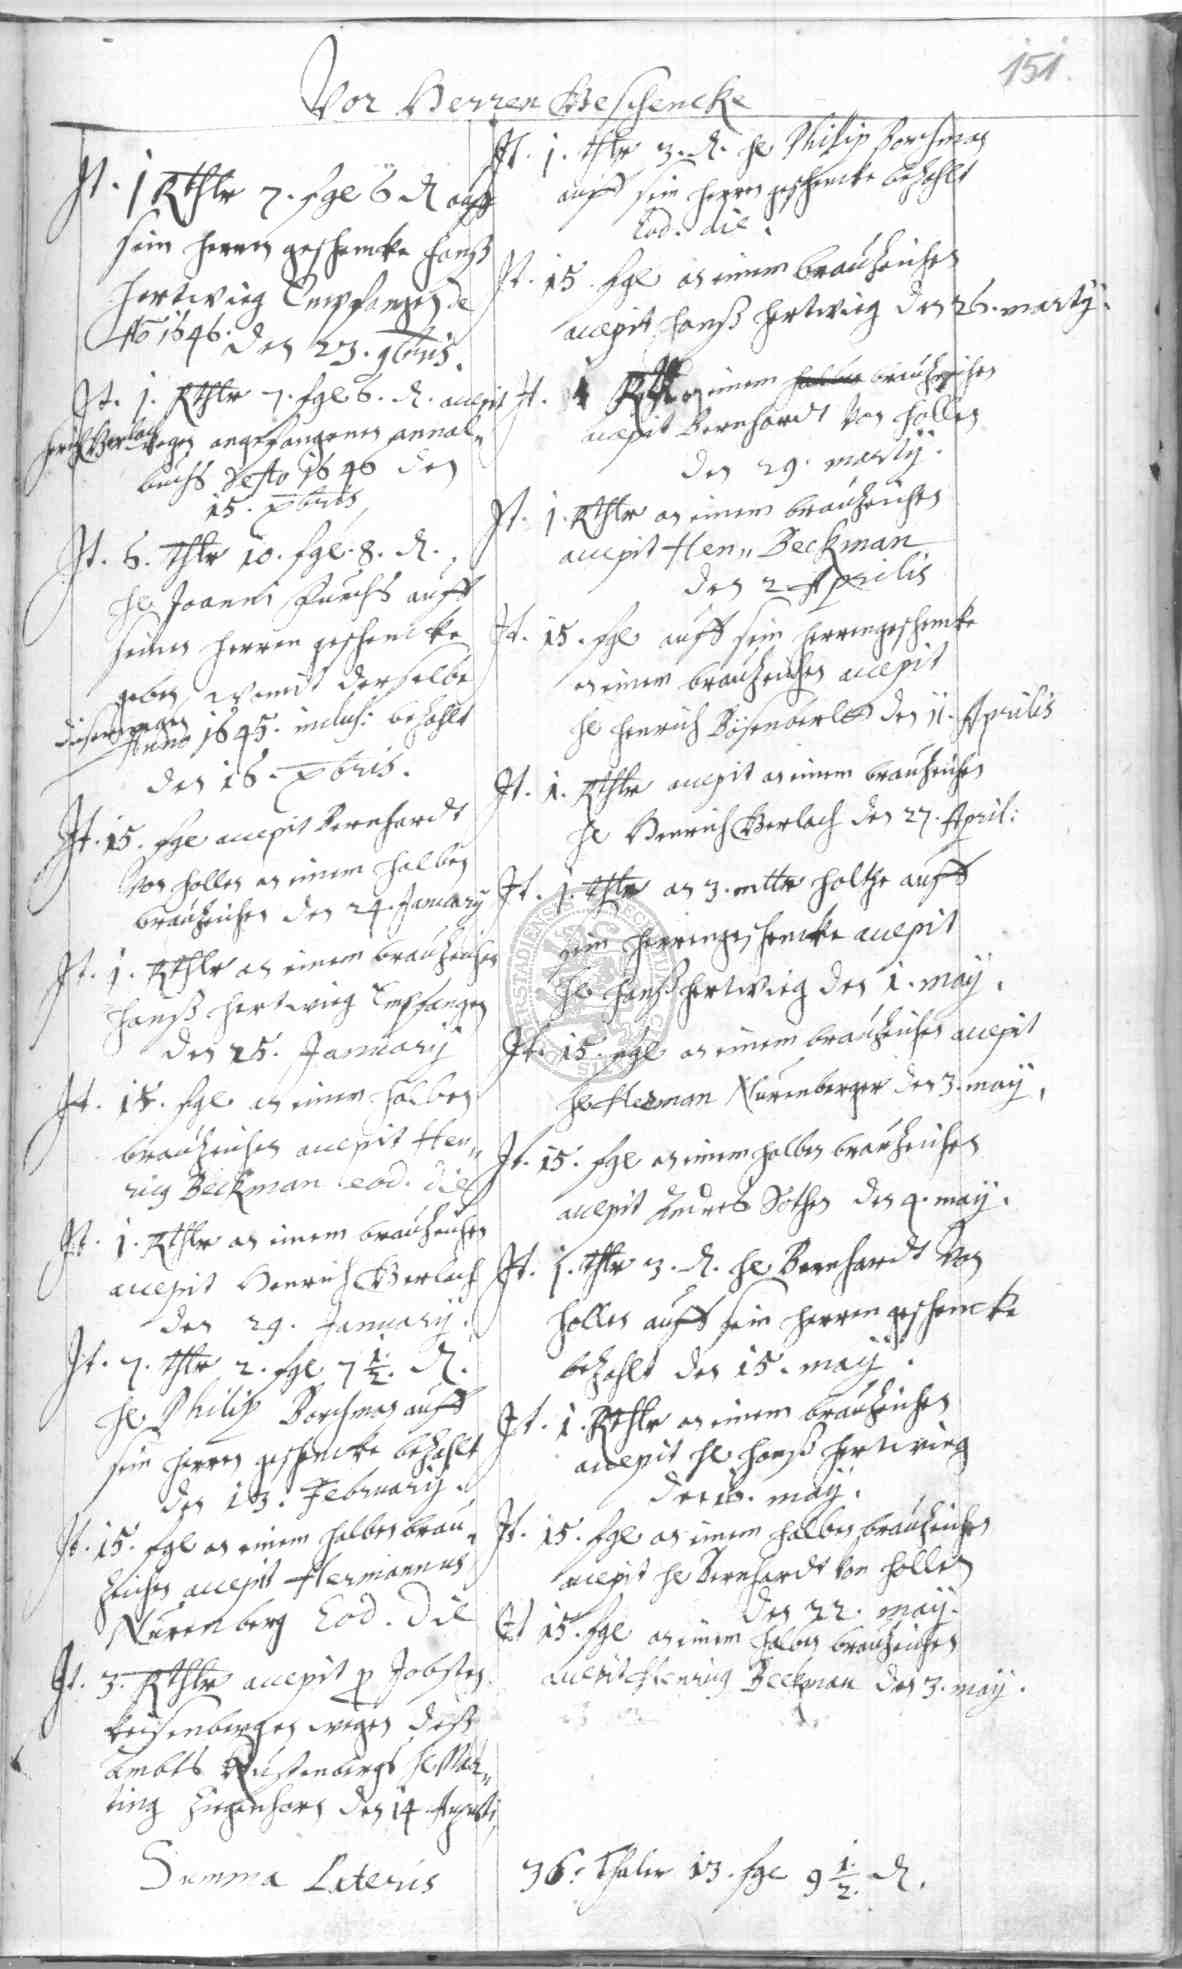 151.
Vor Herren Geschencke
It. 1 Rthlr 7. sgl 6 ₰ auff
sein herren geschencke Hanß
Hertwieg Empfangen de
Ao 1646. den 23. 9bris.
It. 1. Rthlr 7. sgl 6. ₰. accepit
Henrich Gerlach wegen angefangenen annal„
buchs de Ao 1646 den
15. xbris
It. 6. thlr 10. sgl. 8. ₰.
He Joanni Fuchs auff
seinen herren geschencke
geben, womit derselbe
dieserwegen
Anno 1645. inclus: bezahlt
den 16. xbris.
It. 15. sgl accepit Bernhardt
Von Hollen an einem halben
brauzeichen den 24. January
It. 1. Rthlr an einem brauzeichen
Hanß Hertwieg Empfangen
den 25. January
It. 15. sgl an einem halben
brauzeichen accepit Hen„
rieg Beckman eod. die
It. 1. Rthlr an einem brauzeichen
accepit Henrich Gerlach
den 29. January.
It. 7. thlr 2. sgl 7 1/2. ₰.
He Philip Borchman auff
sein herren geschencke bezahlt
den 13. February.
It. 15. sgl an einem halben brau„
zeichen accepit Hermannus
Nurenberg Eod. Die
It. 3. Rthlr accepit p Jobsten
wegen deß
Ambts Rustenbergs He Mar„
ting Ziegenhorn den 14 Augusti
It. 1. thlr 3. ₰. He Philip Borchman
auff sein herren geschencke bezahlt
Eod. die.
It. 15. sgl an einem brauzeichen
accepit Hanß Hertwieg den 26. marty.
It. 1 Rthlr an einem halben brauzeichen
accepit Bernhardt Von Hollen
den 29. marty.
It. 1. Rthlr an einem brauzeichen
accepit Hen„ Beckman
den 2 Aprilis
It. 15. sgl auff sein herrengeschencke
an einem brauzeichen accepit
He Henrich den 11. Aprilis
It. 1. Rthlr accepit an einem brauzeichen
He Henrich Gerlach den 27. April:
It. 1. thlr an 3. mltr holtze auff
sein herrengeschencke accepit
He Hanß Hertwieg den 1. may.
It. 15. sgl an einem brauzeichen accepit
He Herman Nurenberger den 3. may.
It. 15. sgl an einem halben brauzeichen
accepit Andres Sothen den 4. may.
It. 1. thlr 3. ₰. He Bernhardt Von
Hollen auff sein herren geschencke
bezahlt den 15. may.
It. 1. Rthlr an einem brauzeichen
accepit He Hanß Hertwieg
den 18. may.
It. 15. sgl an einem halben brauzeichen
accepit He Bernhardt Von Hollen
den 22. may.
It 15. sgl an einem halben brauzeichen
accepit Henrieg Beckman den 3. may.
Summa Lateris 36. Thaler 13. sgl 9 1/2. ₰.